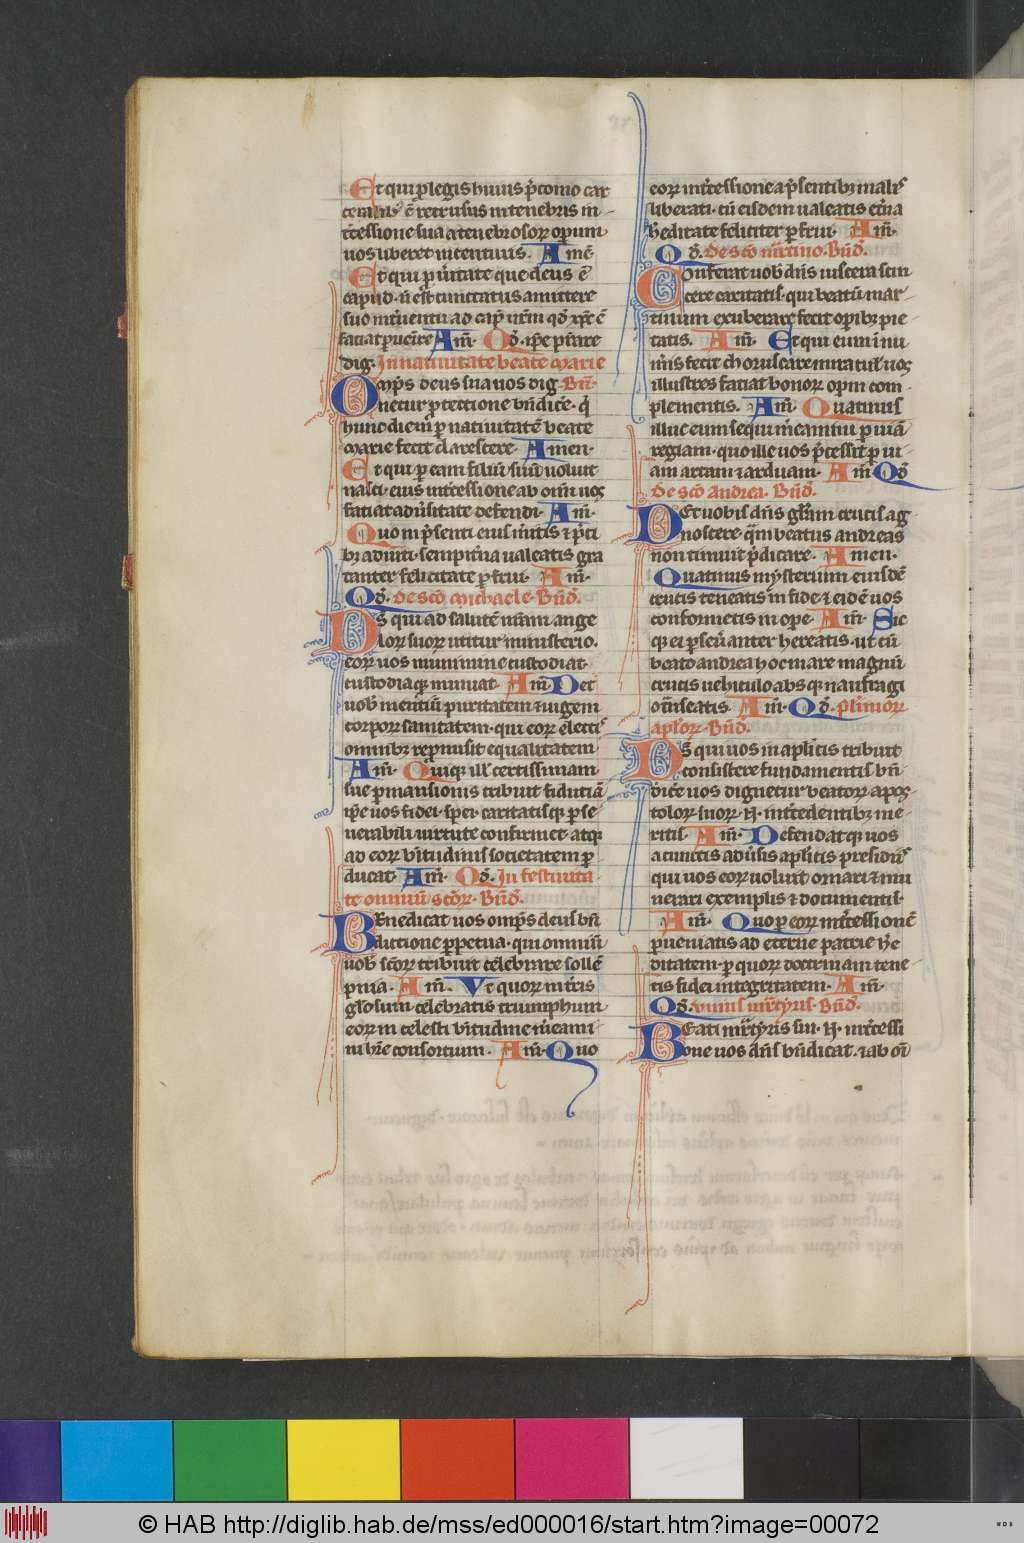 Et qui ꝓ legis huius p̄conio car
ceralib᷒ ē retrusus in tenebris in-
t̄cessione sua a tenebrosoꝝ oꝑum
uos liberet incentiuis. Amē.
Et qui ꝓ ūitate que deus ē
capud. ñ est cunctatus amittere
suo int̄uentu ad cap̄ ur̄m qd̄ xp̄c ē
faciat ꝑuēire Am̄. Qd̄. ip̄e p̄stare
dig. In natiuitate beate marie
Omp̄s deus sua uos dig. Bn̄.
netur ꝓtectione bn̄dic̄e. q̇
hunc diem ꝑ natiuitatē beate
marie fecit clarescere. Amen.
Et qui ꝑ eam filiū suū uoluit
nasci. eius int̄cessione ab om̄i uos
faciat adūsitate defendi. Am̄.
Quo in p̄senti eius m̄itis ⁊ p̄ci
bꝫ adiuti. sempit̄na ualeatis gra
tanter felicitate ꝑfrui. Am̄.
Qd̄. de sc̄o michaele. Bn̄d̄.
Ds̄ qui ad salutē nr̄am ange
loꝝ suoꝝ utitur ministerio.
eoꝝ uos munimine custodiat
custodiaqꝫ muniat. Am̄ Det
uob̄ mentiū puritatem ⁊ uigem
corpoꝝ sanitatem. qui eoꝝ electis
omnibꝫ rep̄misit equalitatem
Am̄. Quiqꝫ ill̄ certissimam
sue ꝑmansionis tribuit fiduciā
ip̄e uos fidei. spei. caritatisqꝫ ꝑse
uerabili uirtute confirmet. atqꝫ
ad eoꝝ b̄itudinis societatem ꝑ
ducat. Am̄. Qd̄. In festiuita
te omniū sc̄oꝝ. Bn̄d̄.
Benedicat uos omp̄s deus bn̄
dictione ꝑpetua. qui omniū
uob̄ sc̄oꝝ tribuit celebrare solle
pnia. Am̄. Vt quoꝝ in t̄ris
gl̄osum celebratis triumphum
eoꝝ in celesti b̄itudine m̄eami
ni h̄re consortium. Am̄. Quo
eoꝝ int̄cessione a p̄sentibꝫ malis
liberati. cū eisdem ualeatis et̄na
h̄editate feliciter ꝑfrui. Am̄.
Qd̄. de sc̄o m̄tino. Bn̄d̄.
Conferat uob̄ dn̄s uiscera sin
cere caritatis. qui beatū mar-
tinum exuberare fecit oꝑibꝫ pie
tatis. Am̄. Et qui eum innu
m̄is fecit choruscare miraculˢ uos
illustres faciat bonoꝝ oꝑm com-
plementis. Am̄. Quatinus
illuc eum sequi m̄eamini ꝑ uiā
regiam. quo ille uos p̄cessit ꝑ ui-
am artam ⁊ arduam. Am̄ Qd̄
de sc̄o Andrea. Bn̄d̄.
Det uobis dn̄s gl̄am crucis ag
noscere. q̄m beatus andreas
non timuit p̄dicare. Amen.
Quatinus mysterium eiusdē
crucis teneatis in fide ⁊ eidē uos
conformetis in oꝑe. Am̄. Sic
qꝫ ei ꝑseūanter hereatis. ut cū
beato andrea hoc mare magnū
crucis uehiculo absqꝫ naufragi
o t̄nseatis. Am̄. Qd̄. pl̄imoꝝ
apl̄oꝝ. Bn̄d̄.
Ds̄ qui uos in apl̄icis tribuit
consistere fundamentis bn̄
dic̄e uos dignetur beatoꝝ apos-
toloꝝ suoꝝ. N. int̄cedentibꝫ me-
ritis. Am̄. Defendatqꝫ uos
a cunctis adūsis apl̄icis presidiis
qui uos eoꝝ uoluit ornari ⁊ mu
nerari exemplis ⁊ documentis.
Am̄. Quo ꝑ eoꝝ int̄cessionē
ꝑueniatis ad eterne patrie h̄e
ditatem. ꝑ quoꝝ doctrinam tene-
tis fidei integritatem. Am̄.
Qd̄. unius mr̄tyris. Bn̄d̄.
Beati mr̄tyris sui. N. int̄cessi
one uos dn̄s bn̄dicat. ⁊ ab om̄i
© HAB http://diglib.hab.de/mss/ed000016/start.htm?image=00072